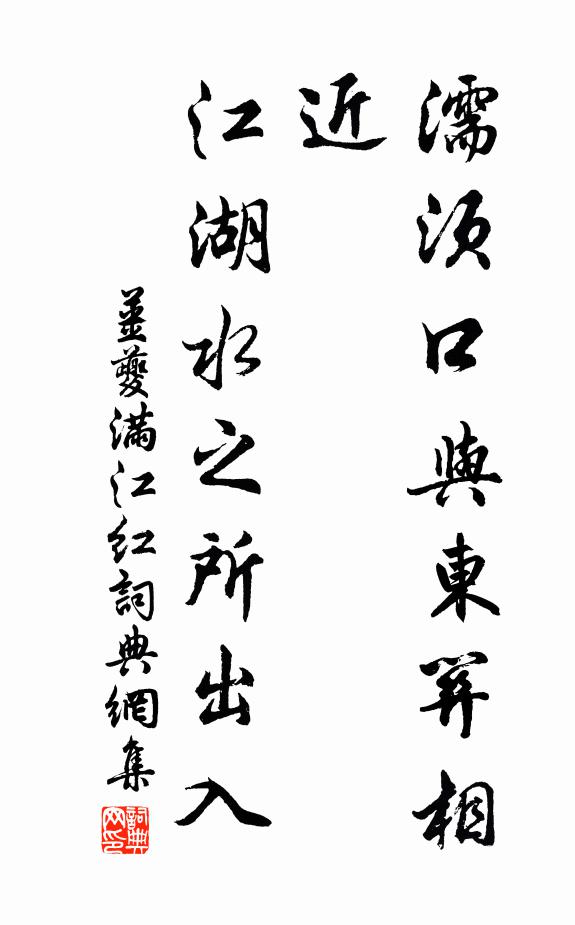 濡須口與東關相
近
江湖水之所出入
薑夔滿江紅詞典網集
詞典
网印